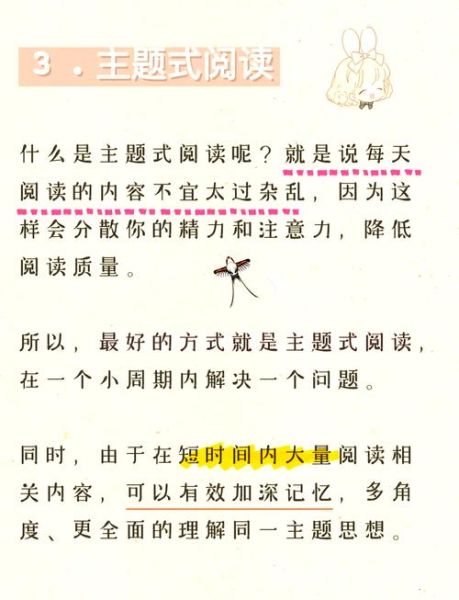 3．主题式阅读
什么是主题式阅读呢？就是说每天
阅读的内容不宜太过杂乱，因为这
样会分散你的精力和注意力，降低
阅读质量。
所以，最好的方式就是主题式阅读，
在一个小周期内解决一个问题。
同时，由于在短时间内大量阅读相
关内容，可以有效加深记忆，多角
度、更全面的理解同一主题思想。